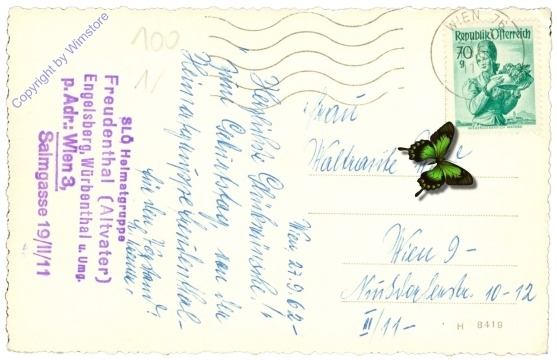 Copyright by Wimstore
100
WIEN
Republik Österreich
70
g
SLÖ Heimatgruppe
Freudenthal (Altvater)
Engelsberg, Würbenthal u. Umg.
p. Adr.: Wien 3,
Salmgasse 19/II/11
Wien 27.9.62-
Herzliche Glückwünsche z.
Geburtstag von der
Heimatgruppe Freudenthal-
für den Vorstand:
Frau
Waltraute
Wien 9-
Nußdorferstr. 10-12
II/11-
H 8419